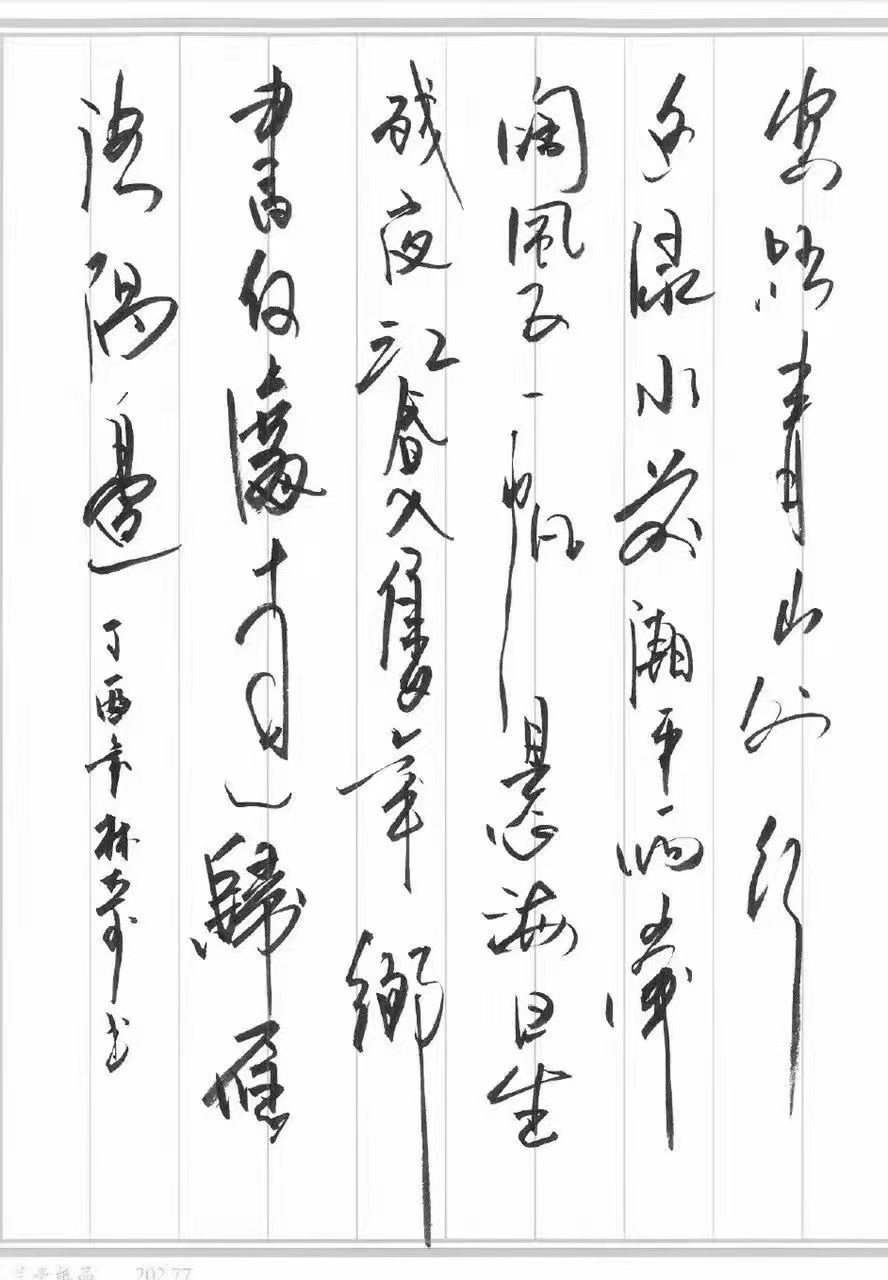 客路青山外行
舟绿水前潮平两岸
阔風正一帆悬海日生
残夜江春入舊年鄉
書何處達歸雁
洛陽邊 丁酉年林书
202.77